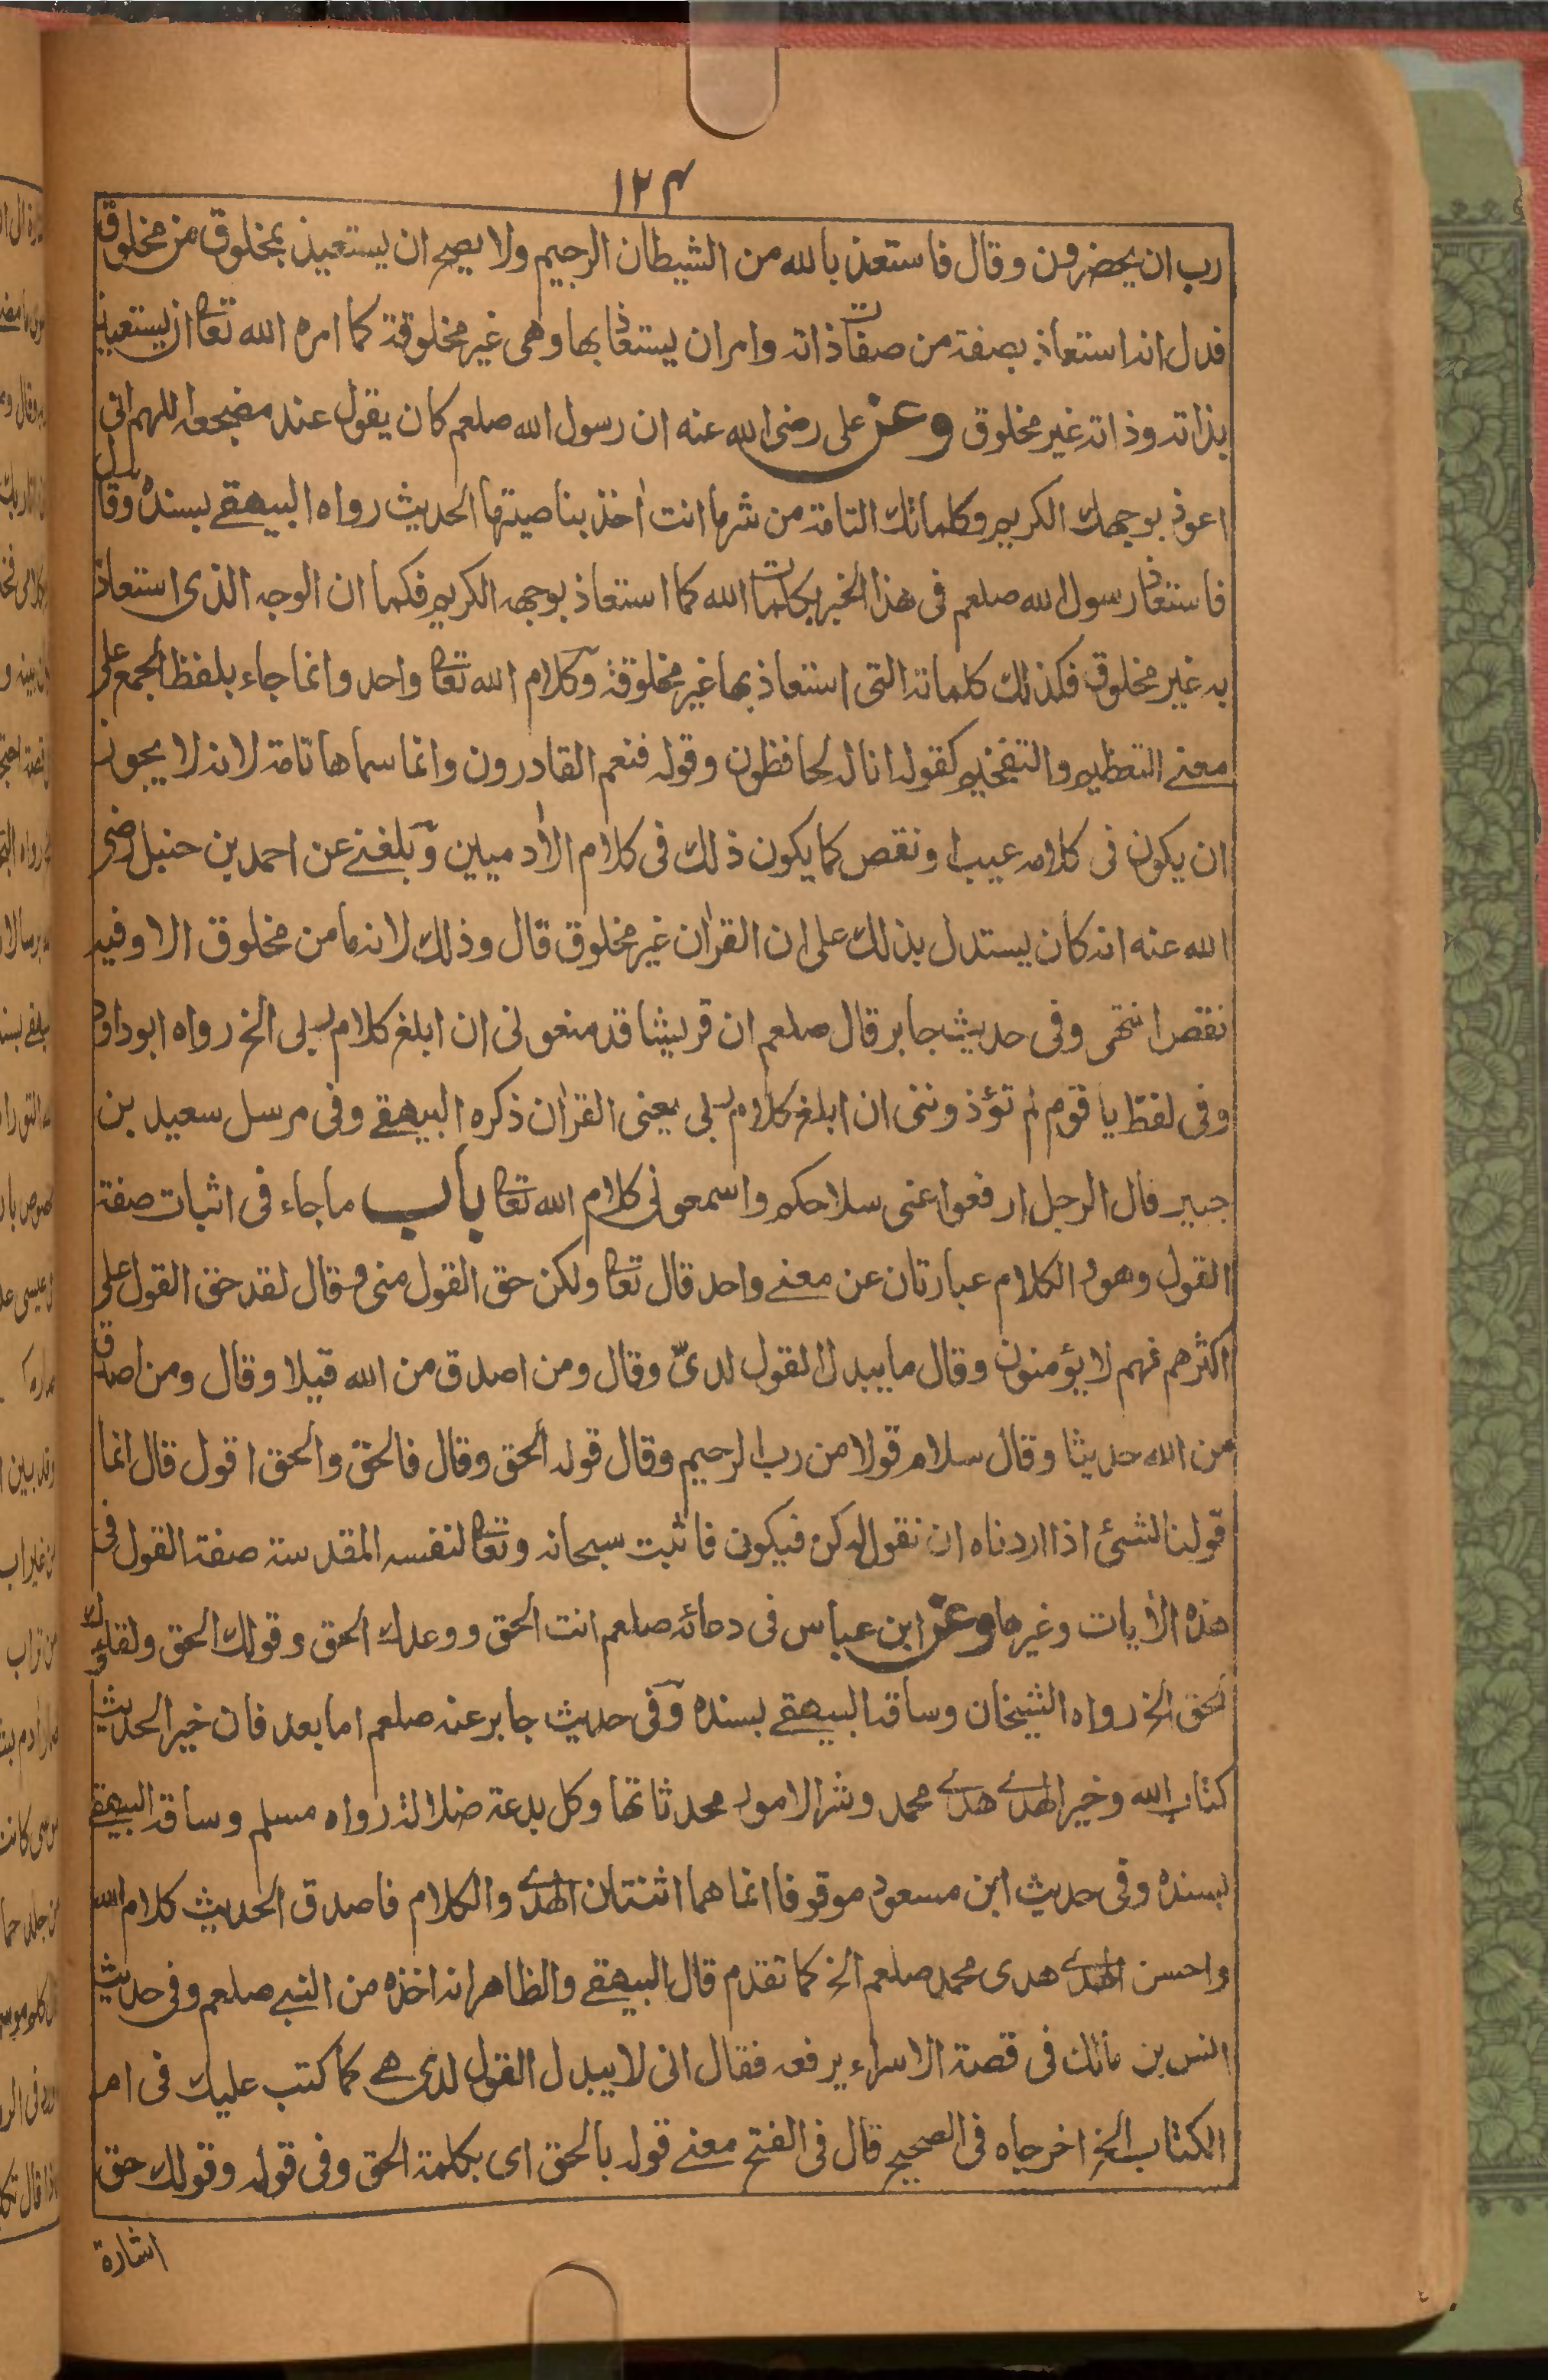 ١٢٤
رب ان يحضرون وقال فاستعذ بالله من الشيطان الرجيم ولا يصح ان يستعيذ بمخلوق من مخلوق
فدل انه استعاذ بصفة من صفات ذاته وامر ان يستعاذ بها وهى غير مخلوقة كما امره الله تعالى ان يستعيذ
بذاته وذاته غير مخلوق وعن على رضى الله عنه ان رسول الله صلعم كان يقول عند مضجعه اللهم انى
اعوذ بوجهك الكريم وكلماتك التامة من شر ما انت اٰخذ بناصيتها الحديث رواه البيهقے بسنده وقال
فاستعاذ رسول الله صلعم فى هذا الخبر بكلمات الله كما استعاذ بوجهه الكريم فكما ان الوجه الذى استعاذ
به غير مخلوق فكذلك كلماته التى استعاذ بها غير مخلوقة وكلام الله تعالى واحد وانما جاء بلفظ الجمع على
معنے التعظيم والتفخيم كقوله انا له لحافظون وقوله فنعم القادرون وانما سماها تامة لانه لا يجوز
ان يكون فى كلامه عيب او نقص كما يكون ذلك فى كلام الاٰدميين وبلغنے عن احمد بن حنبل رضى
الله عنه انه كان يستدل بذلك على ان القراٰن غير مخلوق قال وذلك لانه ما من مخلوق الا وفيه
نقص انتهى وفى حديث جابر قال صلعم ان قريشا قد منعونى ان ابلغ كلام ربى الخ رواه ابو داود
وفى لفظ يا قوم لم تؤذوننى ان ابلغ كلام ربى يعنى القراٰن ذكره البيهقے وفى مرسل سعيد بن
جبير فال الرجل ارفعوا عنى سلاحكم واسمعونى كلام الله تعالى باب ما جاء فى اثبات صفة
القول وهو والكلام عبارتان عن معنے واحد قال تعالى ولكن حق القول منى وقال لقد حق القول على
اكثرهم فهم لا يؤمنون وقال ما يبدل القول لدىّ وقال ومن اصدق من الله قيلا وقال ومن اصدق
من الله حديثا وقال سلام قولا من رب الرحيم وقال قوله الحق وقال فالحق والحق اقول قال انما
قولنا لشئ اذا اردناه ان نقول له كن فيكون فاثبت سبحانه وتعالى لنفسه المقدسة صفة القول فى
هذه الاٰيات وغيرها وعن ابن عباس فى دعائه صلعم انت الحق ووعدك الحق وقولك الحق ولقاؤك
الحق الخ رواه الشيخان وساقه البيهقے بسنده وفى حديث جابر عنه صلعم اما بعد فان خير الحديث
كتاب الله وخير الهدے هدے محمد وشر الامور محدثاتها وكل بدعة ضلالة رواه مسلم وساقه البيهقے
بسنده وفى حديث ابن مسعود موقوفا انما هما اثنتان الهدے والكلام فاصدق الحديث كلام الله
واحسن الهدے هدى محمد صلعم الخ كما تقدم قال البيهقے والظاهر انه اخذه من النبے صلعم وفى حديث
انس بن مالك فى قصة الاسراء يرفعه فقال انى لا يبدل القول لدى هے كما كتب عليك فى ام
الكتاب الخ اخرجاه فى الصحيح قال فى الفتح معنے قوله بالحق اى بكلمة الحق وفى قوله وقولك حق
اشارة